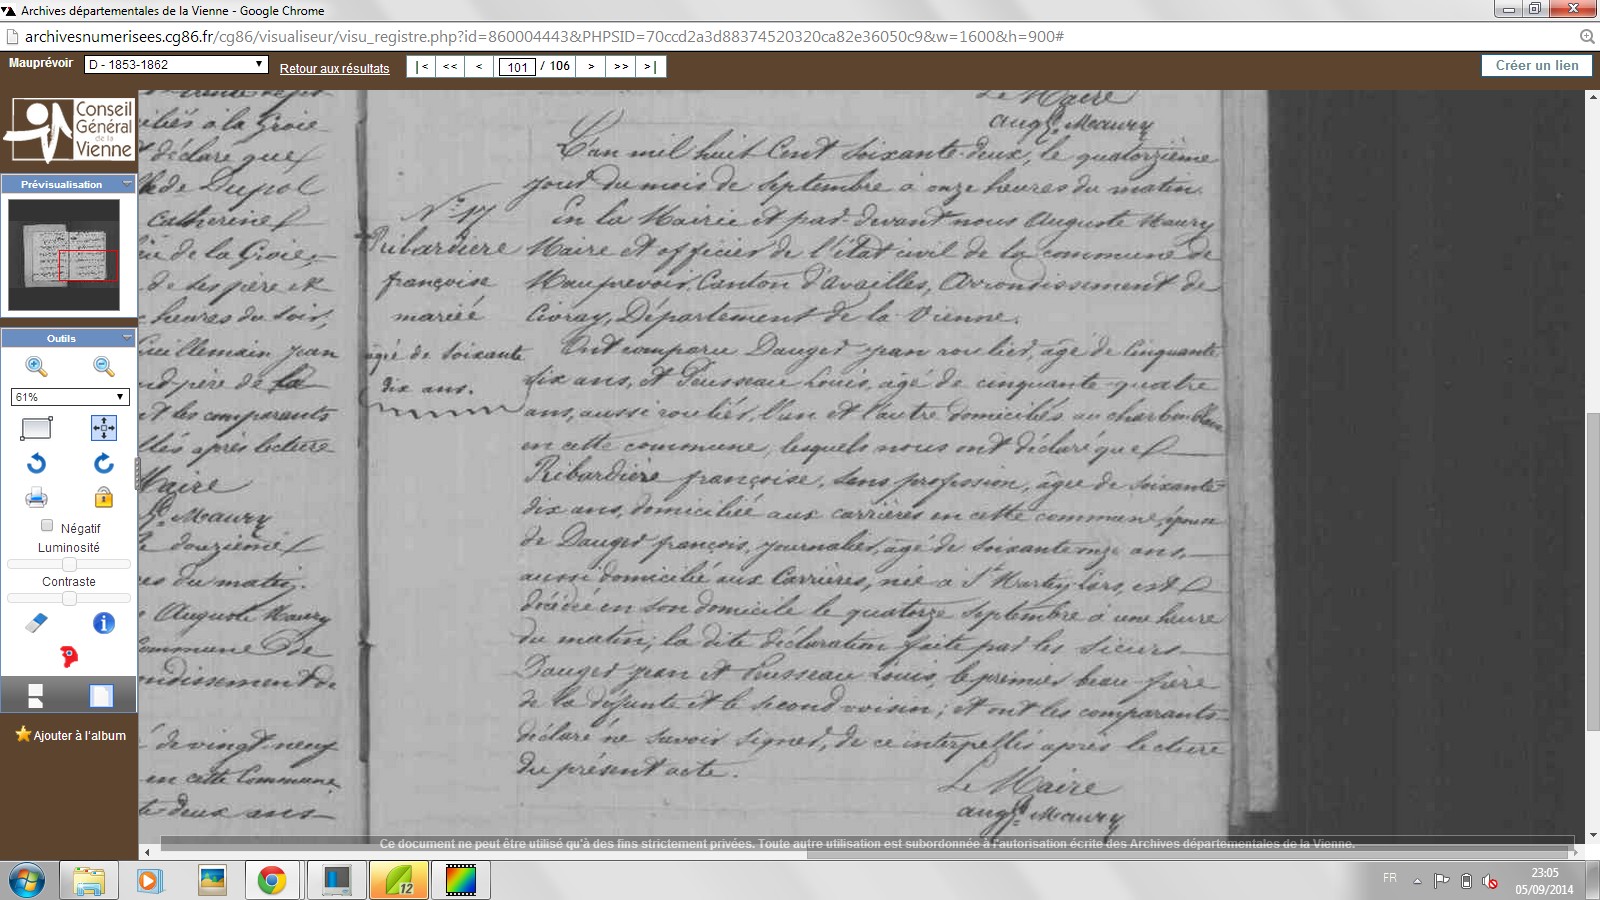 Archives départementales de la Vienne - Google Chrome
archivesnumerisees.cg86.fr/cg86/visualiseur/visu_registre.php?id=860004443&PHPSID=70ccd2a3d88374520320ca82e36050c9&w=1600&h=900#
Mauprévoir
D - 1853-1862
Retour aux résultats
|< << < 101 / 106 > >> >|
Créer un lien
Conseil
Général
de la
Vienne
Prévisualisation
Outils
61%
Négatif
Luminosité
Contraste
Ajouter à l'album
à la Groie
déclaré que
de Dupol
Catherine
de la Groie,
de ses père et
heures du soir,
Guillemain jean
père de la
et les comparants
après lecture
Maire
Maury
douzième
du matin.
Auguste Maury
Commune De
de vingt-neuf
en cette Commune
deux ans
Le Maire
augte Maury
N° 17
Ribardière
françoise
mariéé
âgée de soixante
dix ans.
L'an mil huit Cent soixante-deux, le quatorzième
jour du mois de Septembre à onze heures du matin.
En la Mairie et par-devant nous Auguste Maury
Maire et officier de l'état civil de la commune de
Mauprevoir, Canton d'Availles, Arrondissement de
Civray, Département de la Vienne.
Ont comparu Dauger jean roulier, âgé de Cinquante
dix ans, et Peusseau Louis, âgé de cinquante-quatre
ans, aussi roulier, l'un et l'autre domiciliés au
en cette commune, lesquels nous ont déclaré que
Ribardière françoise, sans profession, âgée de soixante-
dix ans, domiciliée aux carrières en cette commune, épouse
de Dauger françois, journalier, âgé de soixante onze ans,
aussi domicilié aux Carrières, née à St Martin-Lars, est
décédée en son domicile le quatorze Septembre à une heure
du matin; la dite déclaration faite par les sieurs
Dauger jean et Peusseau Louis, le premier beau-frère
de la défunte et le second voisin; et ont les comparants
déclaré ne savoir signer, de ce interpellés après lecture
du présent acte.
Le Maire
augte Maury
Ce document ne peut être utilisé qu'à des fins strictement privées. Toute autre utilisation est subordonnée à l'autorisation écrite des Archives départementales de la Vienne.
12
FR
23:05
05/09/2014